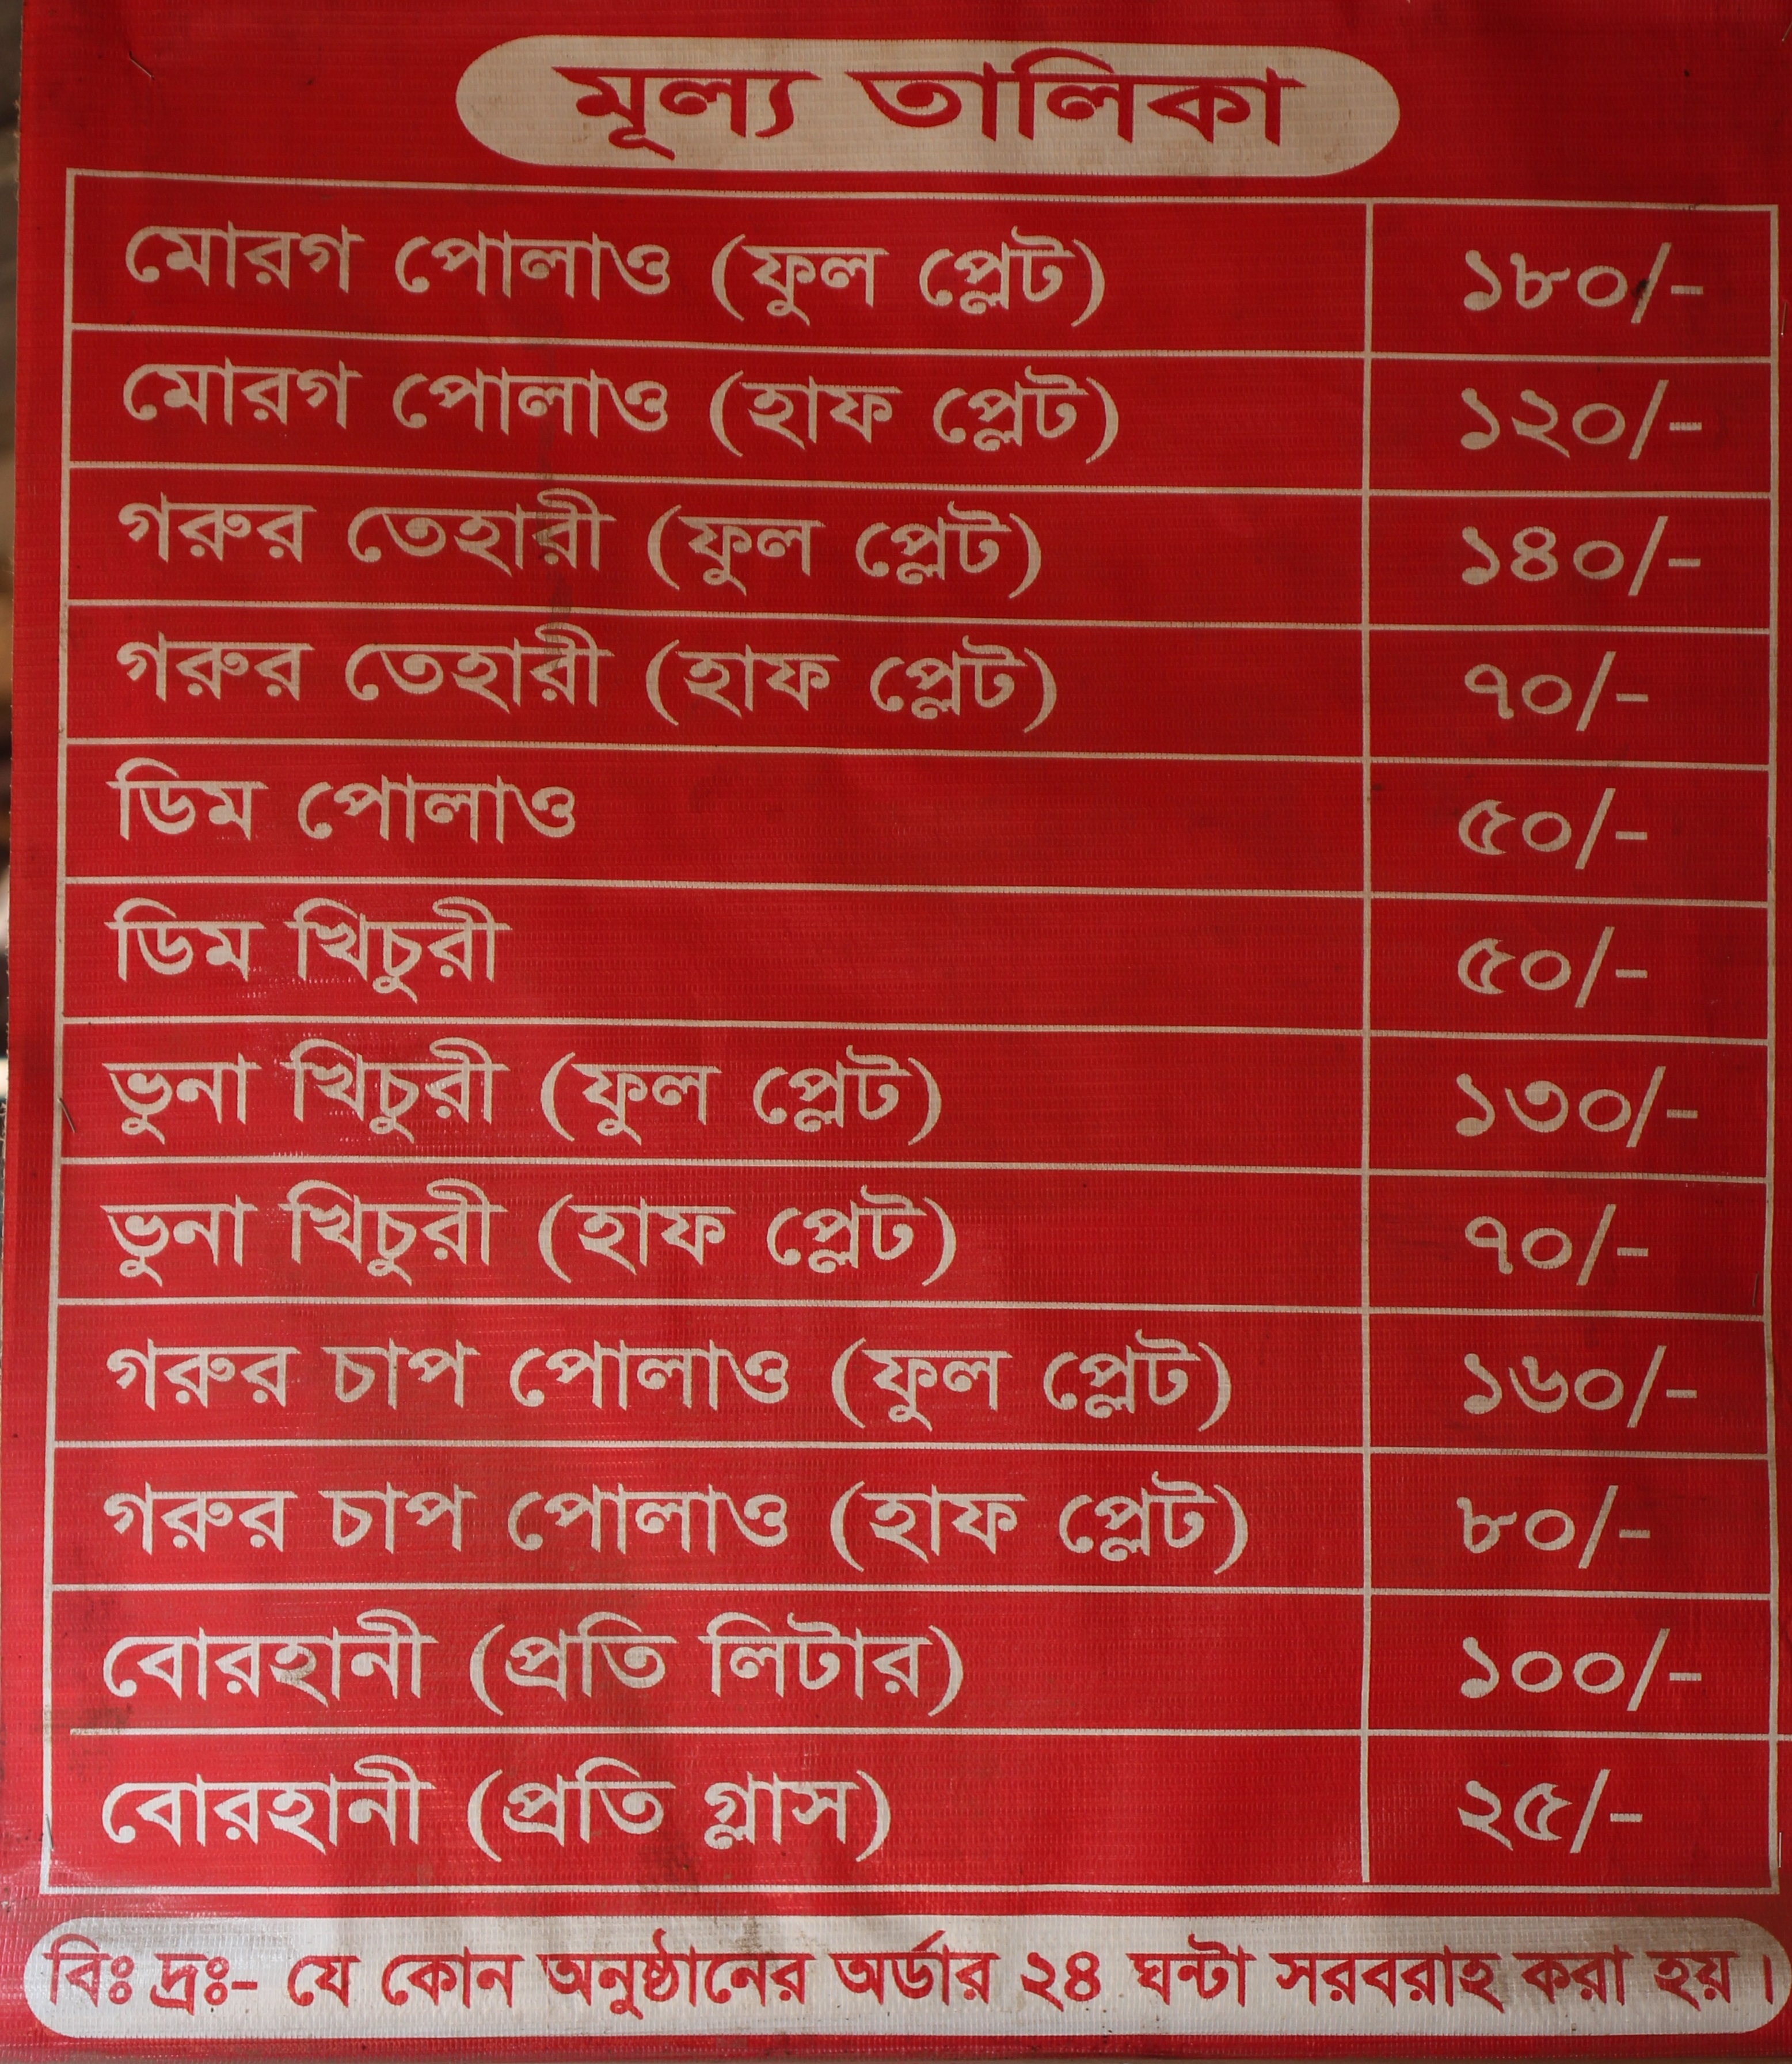 মূল্য তালিকা
মোরগ পোলাও (ফুল প্লেট) ১৮০/-
মোরগ পোলাও (হাফ প্লেট) ১২০/-
গরুর তেহারী (ফুল প্লেট) ১৪০/-
গরুর তেহারী (হাফ প্লেট) ৭০/-
ডিম পোলাও ৫০/-
ডিম খিচুরী ৫০/-
ভুনা খিচুরী (ফুল প্লেট) ১৩০/-
ভুনা খিচুরী (হাফ প্লেট) ৭০/-
গরুর চাপ পোলাও (ফুল প্লেট) ১৬০/-
গরুর চাপ পোলাও (হাফ প্লেট) ৮০/-
বোরহানী (প্রতি লিটার) ১০০/-
বোরহানী (প্রতি গ্লাস) ২৫/-
বিঃ দ্রঃ- যে কোন অনুষ্ঠানের অর্ডার ২৪ ঘন্টা সরবরাহ করা হয় ।